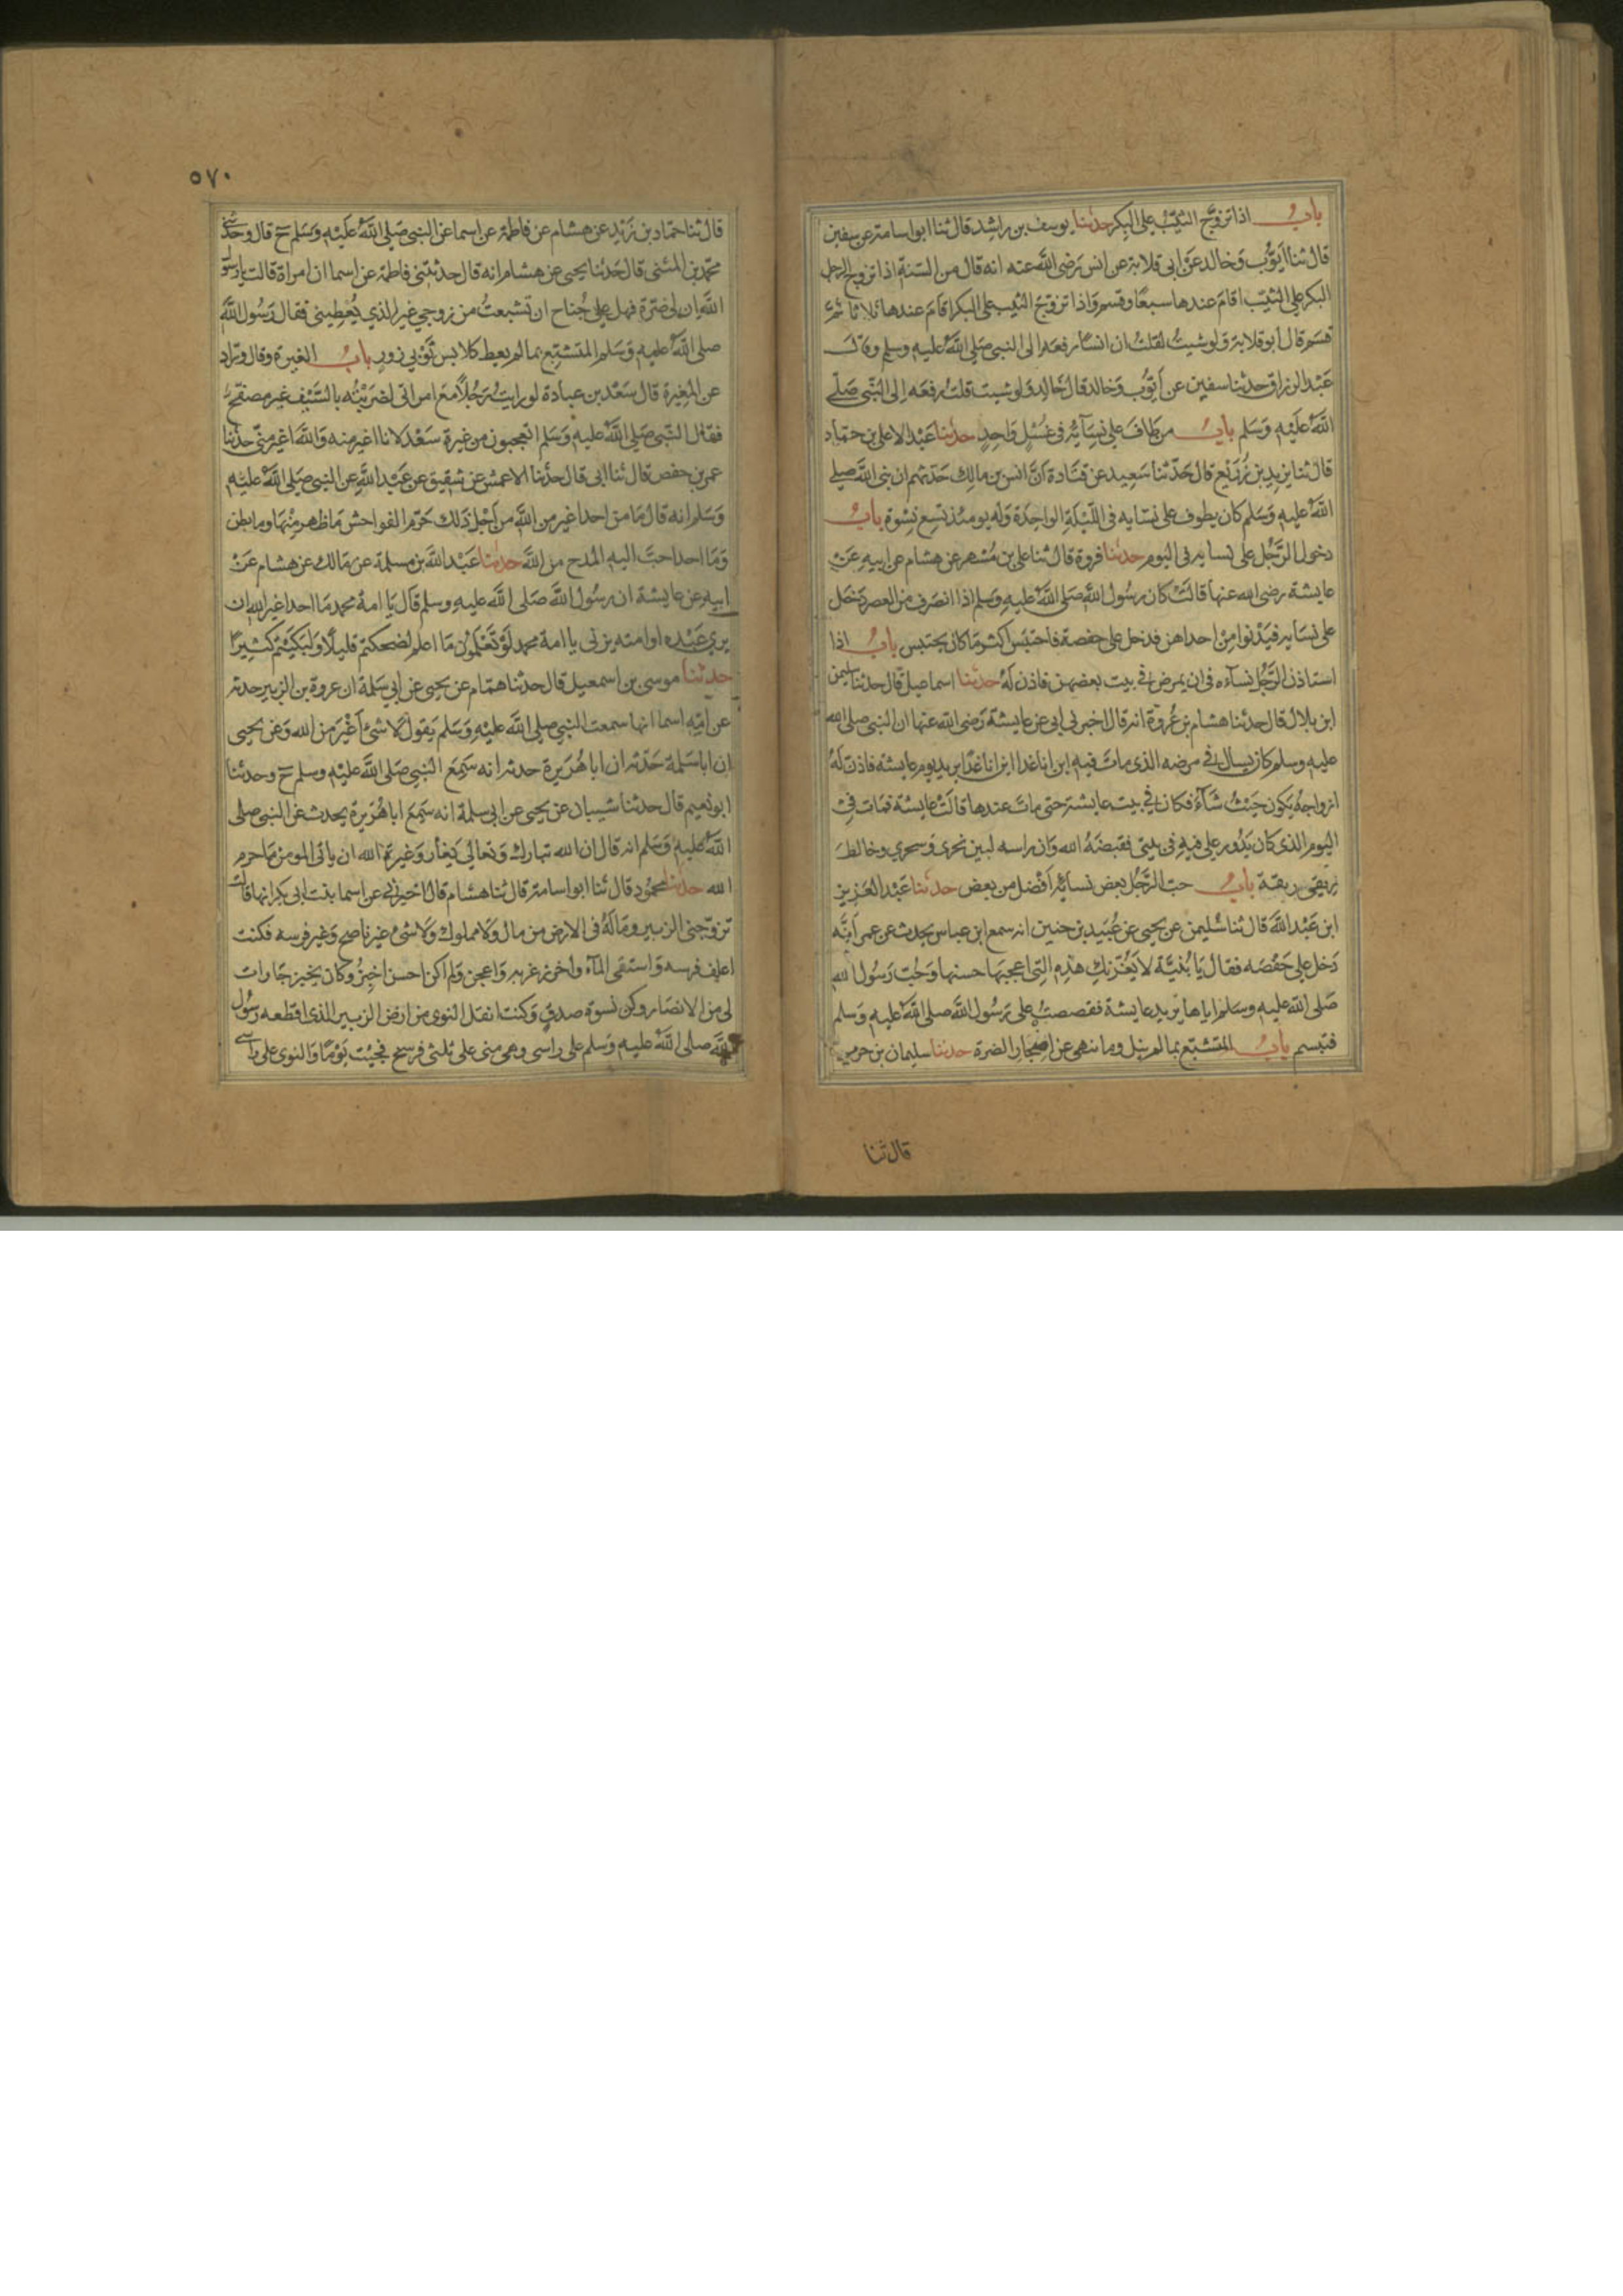 باب اذا تزوج الثيب على البكر حدثنا يوسف بن راشد قال ثنا ابو اسامة عن سفين
قال ثنا ايوب وخالد عن ابى قلابة عن انس رضى الله عنه انه قال من السنة اذا تزوج الرجل
البكر على الثيب اقام عندها سبعا وقسم واذا تزوج الثيب على البكر اقام عندها ثلاثا ثم
قسم قال ابو قلابة ولو شيت لقلت ان انسا رفعه الى النبى صلى الله عليه وسلم وقال
عبد الرزاق حدثنا سفين عن ايوب وخالد قال خالد ولو شيت قلت رفعه الى النبى صلى
الله عليه وسلم باب من طاف على نسايه فى غسل واحد حدثنا عبد الاعلى بن حماد
قال ثنا يزيد بن زريع قال حدثنا سعيد عن قتادة ان انس بن مالك حدثهم ان نبى الله صلى
الله عليه وسلم كان يطوف على نسايه فى الليلة الواحدة وله يومئذ تسع نسوة باب
دخول الرجل على نسايه فى اليوم حدثنا فروة قال ثنا على بن مسهر عن هشام عن ابيه عن
عايشة رضى الله عنها قالت كان رسول الله صلى الله عليه وسلم اذا انصرف من العصر دخل
على نسايه فيدنوا من احداهن فدخل على حفصة فاحتبس اكثر ما كان يحتبس باب اذا
استاذن الرجل نسآءه فى ان يمرض فى بيت بعضهن فاذن له حدثنا اسماعيل قال حدثنا سليمن
ابن بلال قال حدثنا هشام بن عروة انه قال اخبرنى ابى عن عايشة رضى الله عنها ان النبى صلى الله
عليه وسلم كان يسال فى مرضه الذى مات فيه اين انا غدا اين انا غدا يريد يوم عايشة فاذن له
ازواجه يكون حيث شآء فكان فى بيت عايشة حتى مات عندها قالت عايشة فمات فى
اليوم الذى كان يدور على فيه فى بيتى فقبضه الله وان راسه لبين نحرى وسحرى وخالط
ريقى ريقه باب حب الرجل بعض نسائه افضل من بعض حدثنا عبد العزيز
ابن عبد الله قال ثنا سليمن عن يحيى عن عبيد بن حنين انه سمع ابن عباس يحدث عن عمر انه
دخل على حفصه فقال يا بنية لا يغرنك هذه التى اعجبها حسنها وحب رسول الله
صلى الله عليه وسلم اياها يريد عايشة فقصصت على رسول الله صلى الله عليه وسلم
فتبسم باب المتشبع بما لم ينل وما ينهى عن افتخار الضرة حدثنا سليمان بن حرب
قال ثنا
٥٧٠
قال ثنا حماد بن زيد عن هشام عن فاطمة عن اسما عن النبى صلى الله عليه وسلم ح قال وحدثنى
محمد بن المثنى قال حدثنا يحيى عن هشام انه قال حدثتنى فاطمة عن اسما ان امراة قالت يا رسول
الله ان لى ضرة فهل على جناح ان تشبعت من زوجى غير الذى يعطينى فقال رسول الله
صلى الله عليه وسلم المتشبع بما لم يعط كلابس ثوبى زور باب الغيرة وقال وراد
عن المغيرة قال سعد بن عبادة لو رايت رجلا مع امراتى لضربته بالسيف غير مصفح
فقال النبى صلى الله عليه وسلم اتعجبون من غيرة سعد لانا اغير منه والله اغير منى حدثنا
عمر بن حفص قال ثنا ابى قال حدثنا الاعمش عن شقيق عن عبد الله عن النبى صلى الله عليه
وسلم انه قال ما من احد اغير من الله من اجل ذلك حرم الفواحش ما ظهر منها وما بطن
وما احد احب اليه المدح من الله حدثنا عبد الله بن مسلمة عن مالك عن هشام عن
ابيه عن عايشة ان رسول الله صلى الله عليه وسلم قال يا امة محمد ما احد اغير الله ان
يرى عبده او امته يزنى يا امة محمد لو تعلمون ما اعلم لضحكتم قليلا ولبكيتم كثيرا
حدثنا موسى بن اسمعيل قال حدثنا همام عن يحيى عن ابى سلمة ان عروة بن الزبير حدثه
عن امه اسما انها سمعت النبى صلى الله عليه وسلم يقول لا شئ اغير من الله وعن يحيى
ان ابا سلمة حدثه ان ابا هريرة حدثه انه سمع النبى صلى الله عليه وسلم ح وحدثنا
ابو نعيم قال حدثنا شيبان عن يحيى عن ابى سلمة انه سمع ابا هريرة يحدث عن النبى صلى
الله عليه وسلم انه قال ان الله تبارك وتعالى يغار وغيرة الله ان ياتى المومن ما حرم
الله حدثنا محمود قال ثنا ابو اسامة قال ثنا هشام قال اخبرنى ابى عن اسما بنت ابى بكر انها قالت
تزوجنى الزبير وما له فى الارض من مال ولا مملوك ولا شئ غير ناضح وغير فرسه فكنت
اعلف فرسه واستقى المآء واخرز غربه واعجن ولم اكن احسن اخبز وكان يخبز جارات
لى من الانصار وكن نسوة صدق وكنت انقل النوى من ارض الزبير الذى اقطعه رسول
الله صلى الله عليه وسلم على راسى وهى منى على ثلثى فرسخ فجيت يوما والنوى على راسى